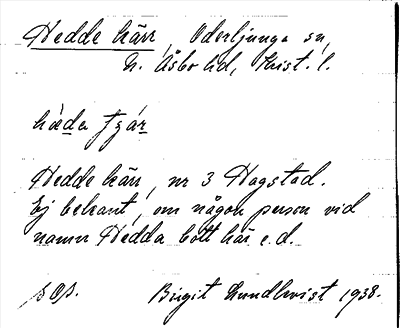 Hedde kärr, Oderljunga sn,
N. Åsbo hd, Krist. l.
hèda
Hedde kärr, nr 3 Hagstad.
Ej bekant, om någon person vid
namn Hedda bott här e.d.
Birgit Lundkvist 1938.